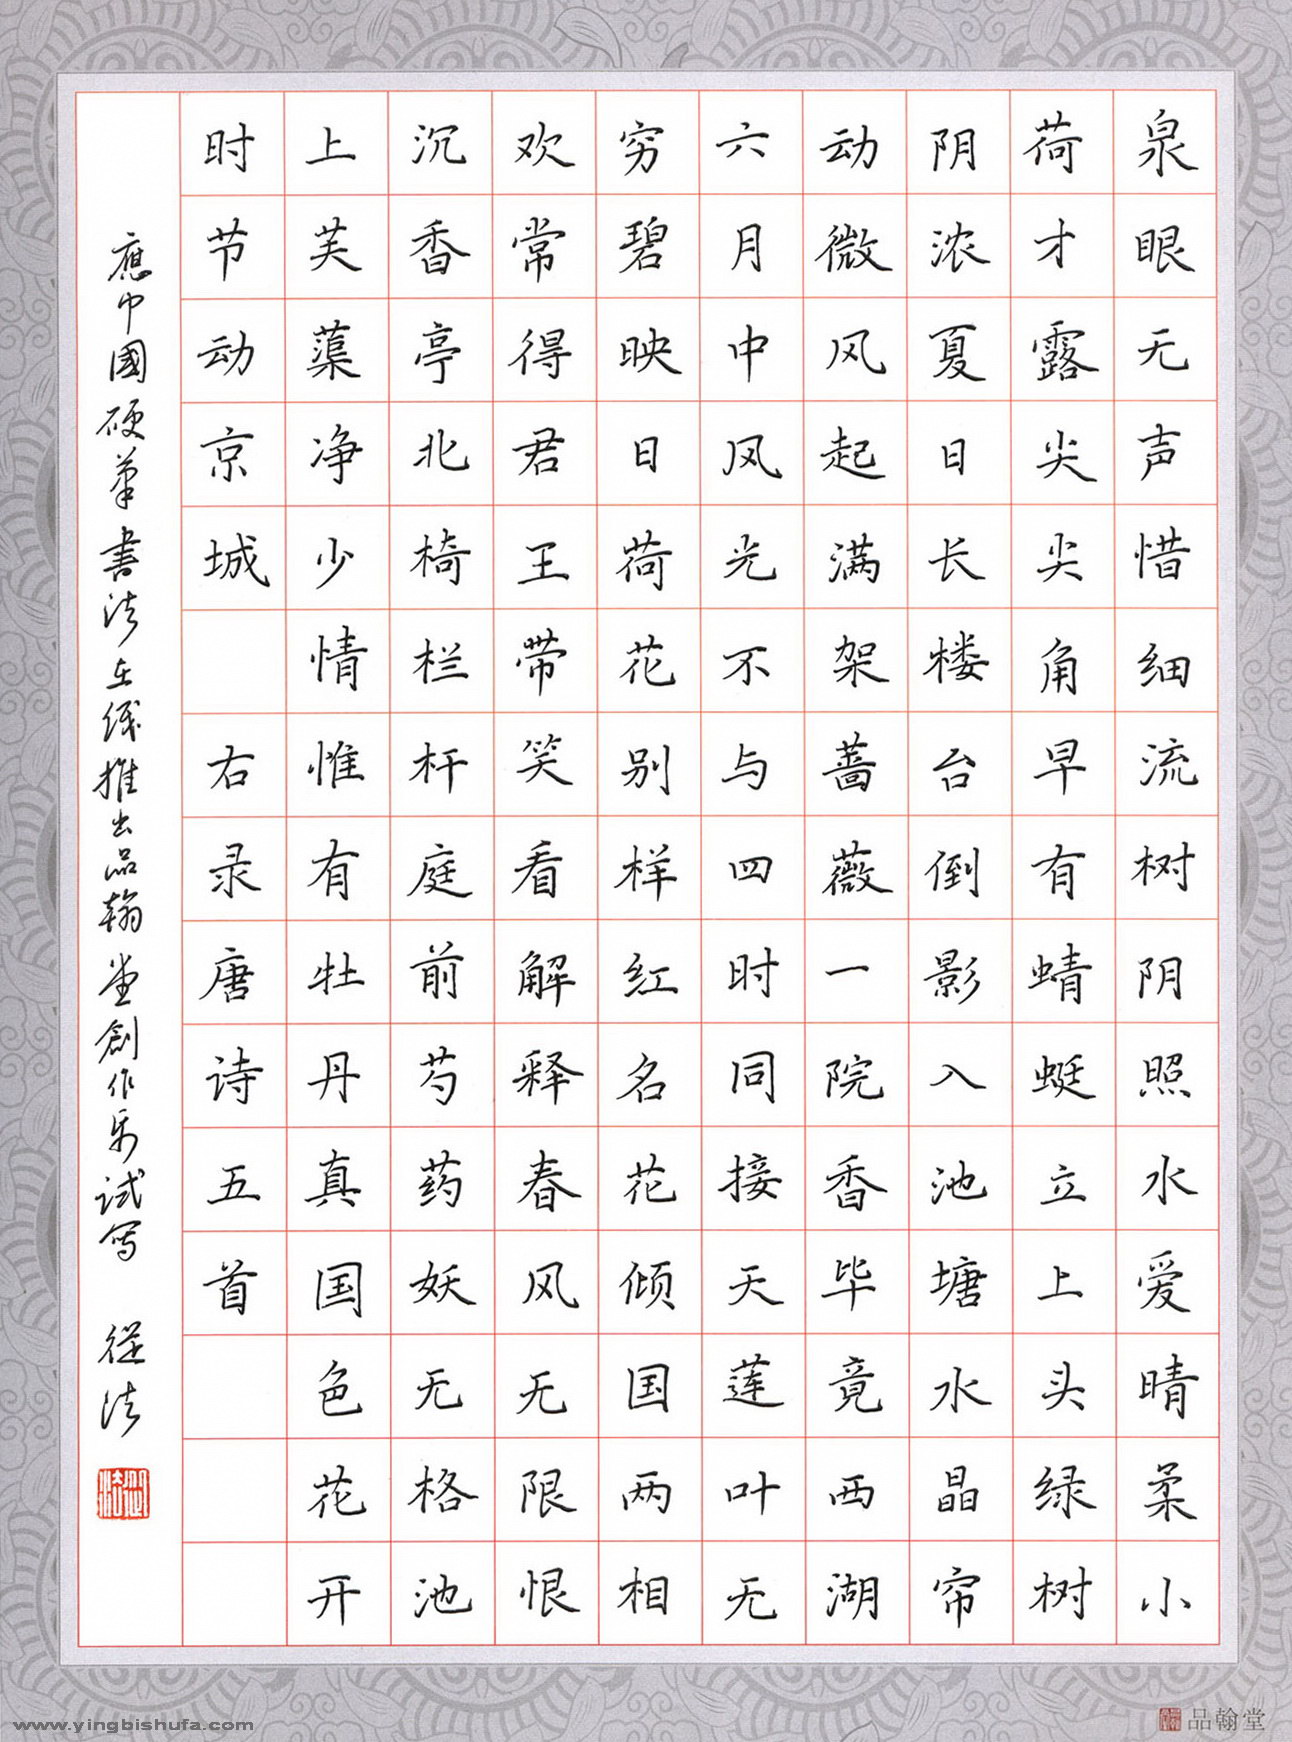 泉眼无声惜细流树阴照水爱晴柔小
荷才露尖尖角早有蜻蜓立上头绿树
阴浓夏日长楼台倒影入池塘水晶帘
动微风起满架蔷薇一院香毕竟西湖
六月中风光不与四时同接天莲叶无
穷碧映日荷花别样红名花倾国两相
欢常得君王带笑看解释春风无限恨
沉香亭北椅栏杆庭前芍药妖无格池
上芙蕖净少情惟有牡丹真国色花开
时节动京城 右录唐诗五首
應中國硬筆書法在线推出品翰堂創作帋试写 從法
www.yingbishufa.com
品翰堂